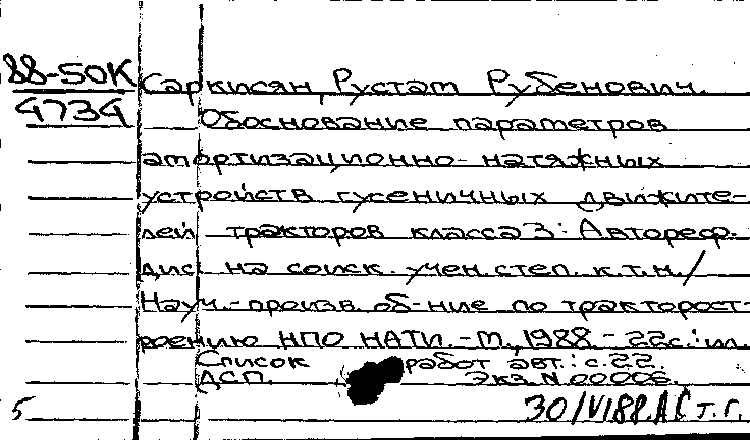 88-50К Саркисян, Рустам Рубенович.
4734 Обоснование параметров
амортизационно-натяжных
устройств гусеничных движите-
лей тракторов класса 3: Автореф.
дис. на соиск. учен. степ. к.т.н./
Науч.-произв. об-ние по тракторост-
роению НПО НАТИ. - М., 1988. - 22с.: ил.
Список работ авт.: с.22.
ДСП. Экз. N 00006.
5 30/VI88.